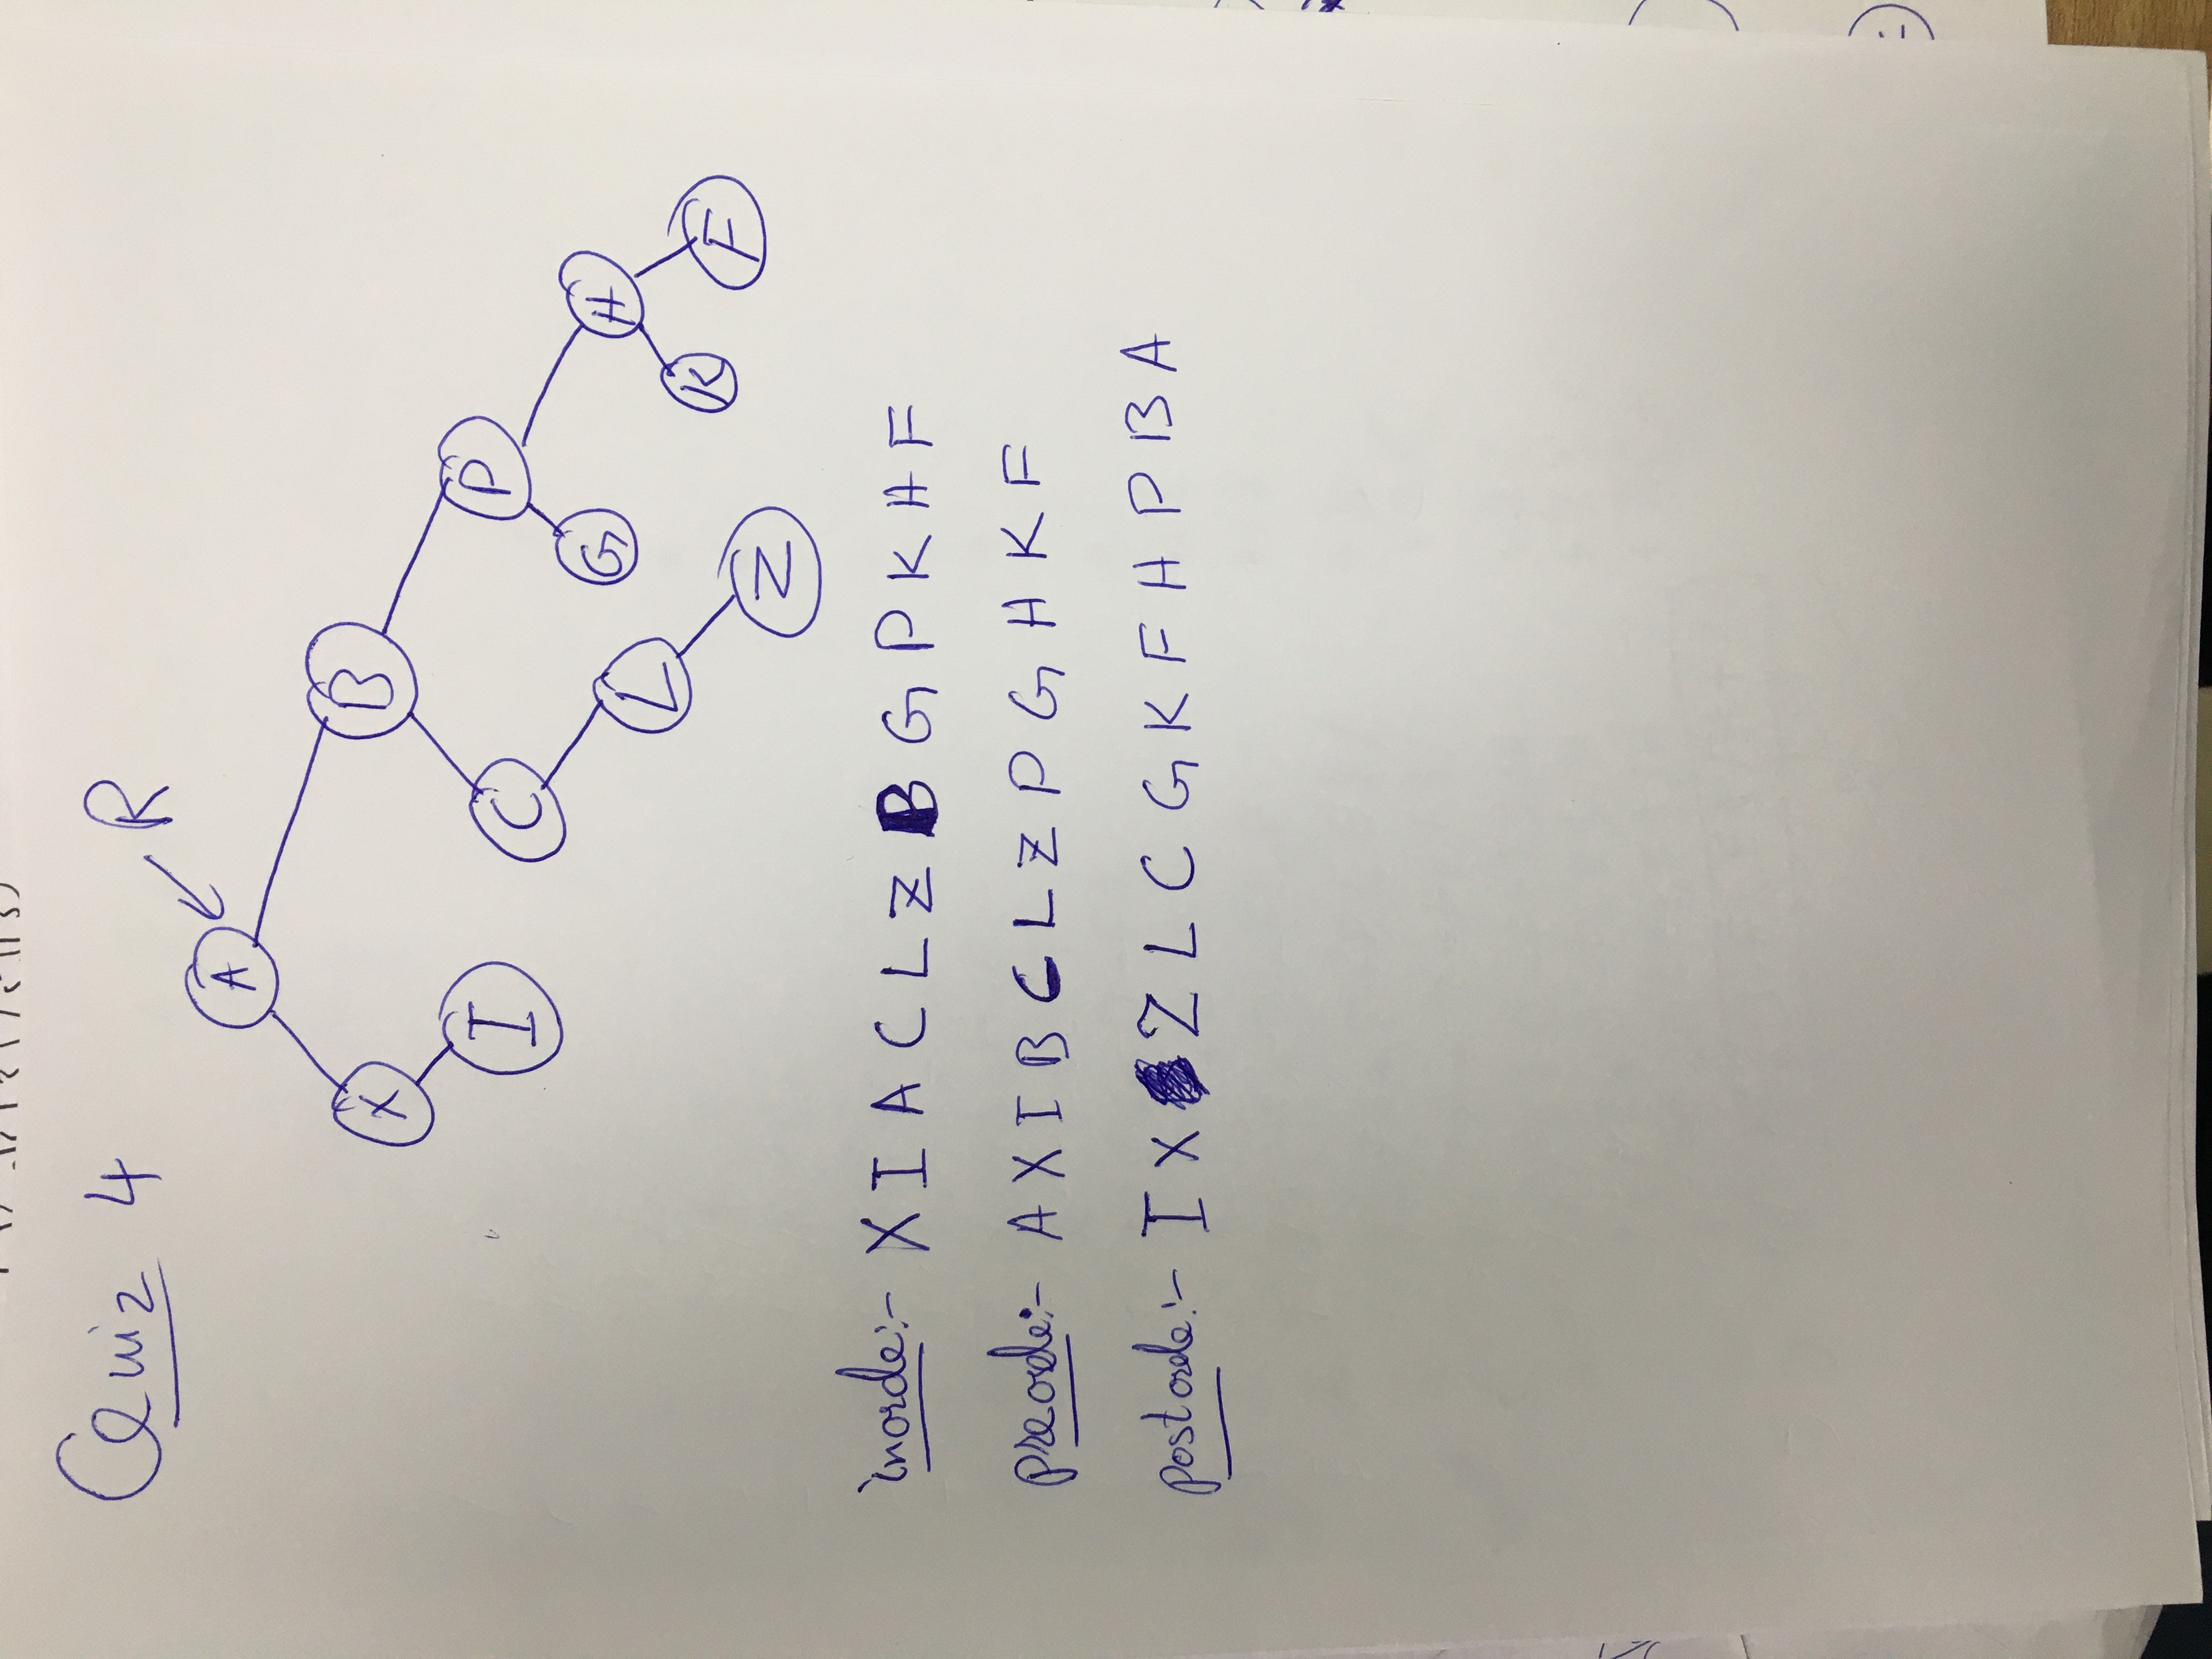 Quiz 4
R
A
X B
I C P
L G H
Z K F
inorde:- X I A C L Z B G P K H F
preorde:- A X I B C L Z P G H K F
postorde:- I X Z L C G K F H P B A